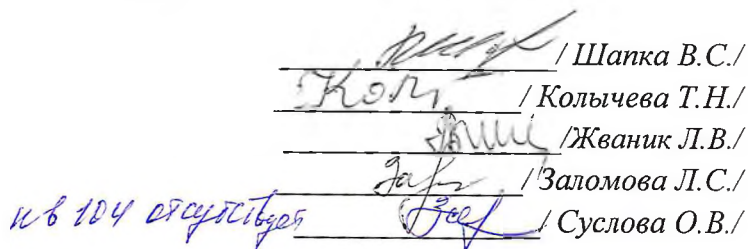 / Шапка В.С./
Кол / Колычева Т.Н./
/Жваник Л.В./
/ Заломова Л.С./
кв 104 отсутствует / Суслова О.В./